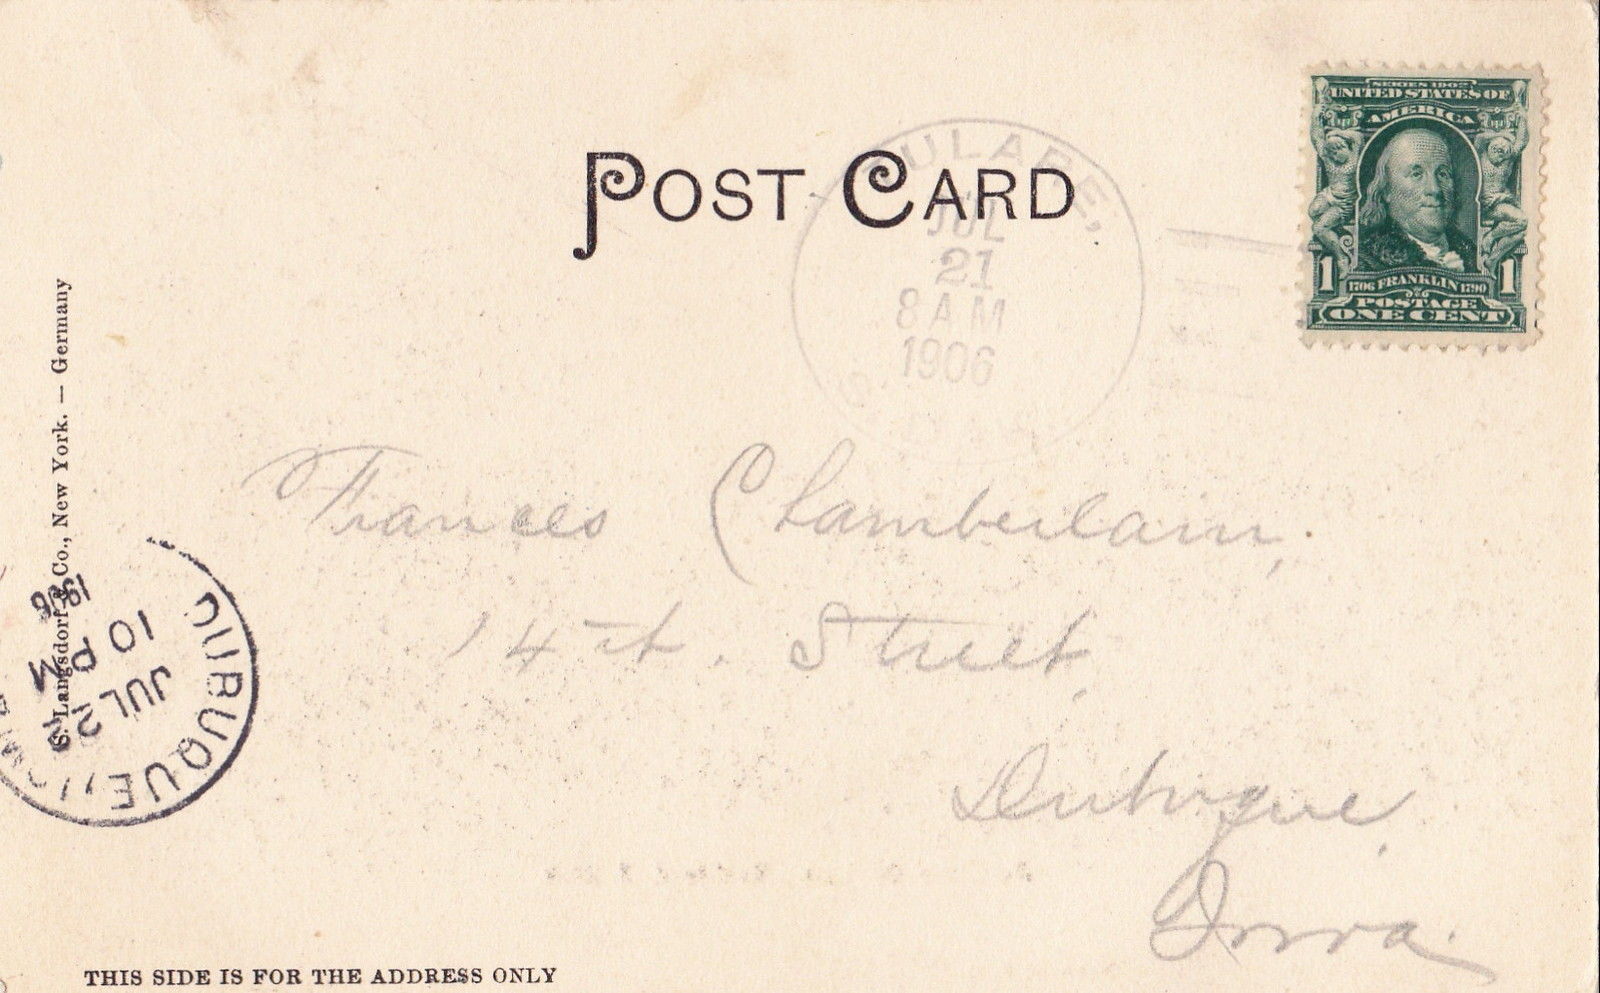 POST CARD
SERIES 1902
UNITED STATES OF
AMERICA
1 1
1706 FRANKLIN 1790
POSTAGE
ONE CENT
TULARE,
JUL
21
8 AM
1906
S.
Frances Chamberlain,
14th. Street,
Dubuque,
Iowa.
S. Langsdorf & Co., New York. — Germany
DUBUQUE, IOWA
JUL 22
10 PM
1906
THIS SIDE IS FOR THE ADDRESS ONLY